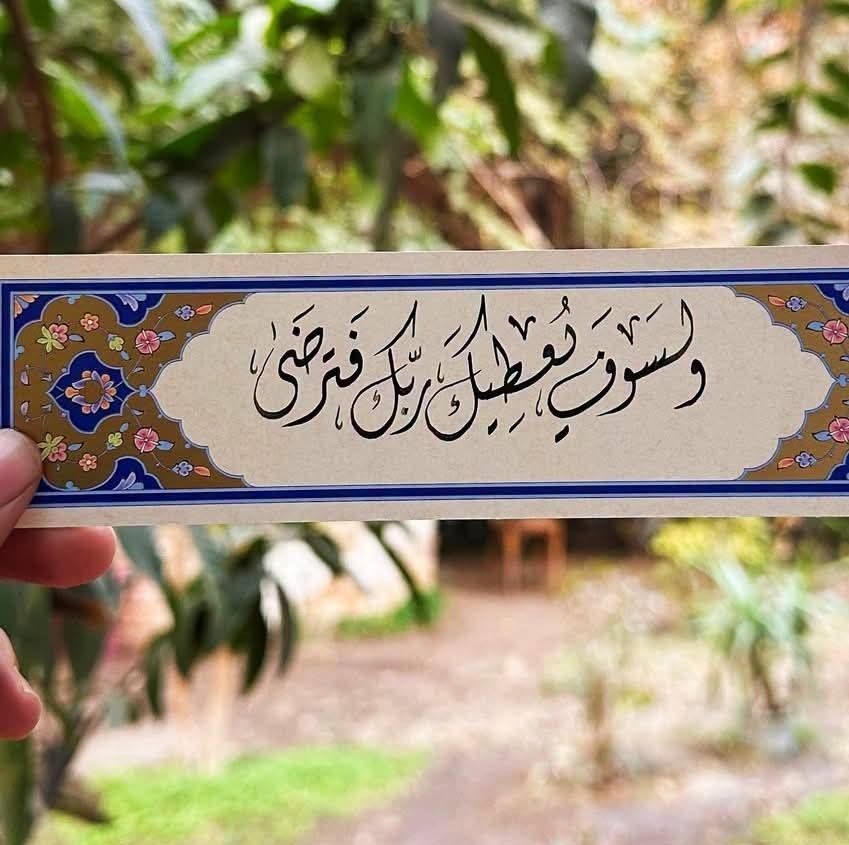 ولسوف يُعطِيكَ ربّك فَترضَى